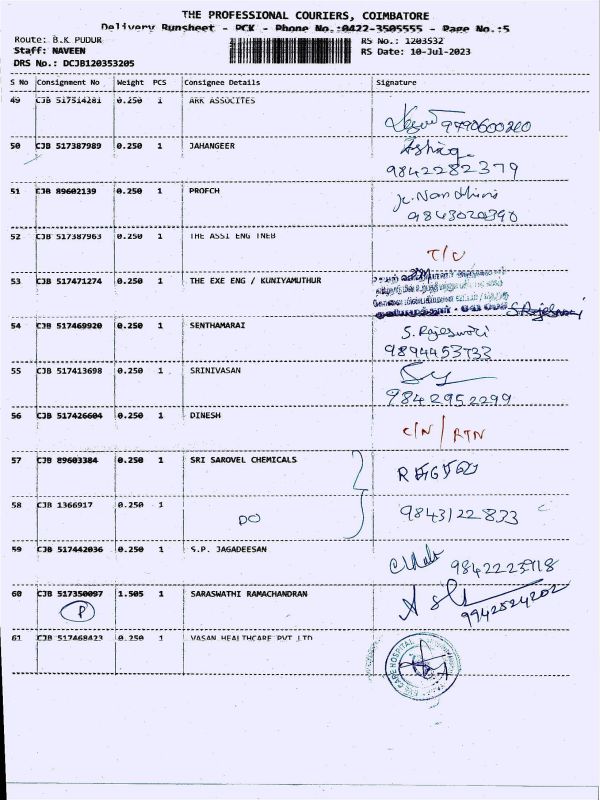 THE PROFESSIONAL COURIERS, COIMBATORE
Delivery Runsheet - PCK - Phone No.:0422-3505555 - Page No.:5
Route: B.K PUDUR RS No.: 1203532
Staff: NAVEEN RS Date: 10-Jul-2023
DRS No.: DCJB120353205
S No Consignment No Weight PCS Consignee Details Signature
49 CJB 517514281 0.250 1 ARK ASSOCITES
9790600260
50 CJB 517387989 0.250 1 JAHANGEER Ashiq
9842282379
51 CJB 89602139 0.250 1 PROFCH K. Nandhini
9843020390
52 CJB 517387963 0.250 1 THE ASSI ENG TNEB
53 CJB 517471274 0.250 1 THE EXE ENG / KUNIYAMUTHUR
S.Rajeswari
54 CJB 517469920 0.250 1 SENTHAMARAI S. Rajeswari
9894453733
55 CJB 517413698 0.250 1 SRINIVASAN
9842952299
56 CJB 517426604 0.250 1 DINESH C/N / RTN
57 CJB 89603384 0.250 1 SRI SAROVEL CHEMICALS
58 CJB 1366917 0.250 1 DO 9843122833
59 CJB 517442036 0.250 1 S.P. JAGADEESAN 9842223918
60 CJB 517350097 1.505 1 SARASWATHI RAMACHANDRAN
P 9942524202
61 CJB 517468423 0.250 1 VASAN HEALTHCARE PVT LTD
EYE CARE HOSPITAL